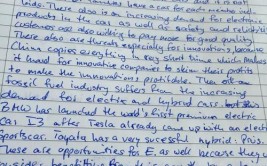 kids. There also is an increasing demand for electric
products in the car as well as safety and reliabil
customers are also willing to pay more for good quality.
There also are threats especially for innovations, because
China copies everything in a very short time which makes
it hard for innovative companies to skim their profits
to make the innovations profitable. Then, the
fossil fuel industry suffers from the increasing
demand for electric and hybrid cars. but this
BMW has launched the world's first premium electric
car I3 after Tesla already came up with an electr
sportscar. Toyota has a very sucessful hybrid: Prius.
These are opportunities for E. as well because they